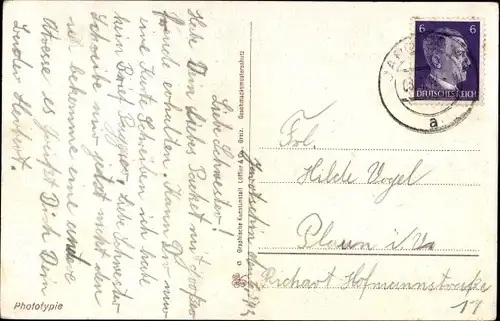 Liebe Schwester!
Habe Dein liebes Packet mit großer
Freude erhalten. Kann Dir nur
eine Karte schreiben ich habe
kein Brief Papier. Liebe Schwester
Schreibe mir jetzt nicht den
ich bekomme eine andere
Adresse es grüßt Dich Dein
Bruder Herbert.
Phototypie
Graphische Kunstanstalt Löffler &
Greiz
Geschmacksmusterschutz
6 6
DEUTSCHES REICH
a
Frl.
Hilde Vogel
Plauen i/V.
Richart Hofmannstraße
17